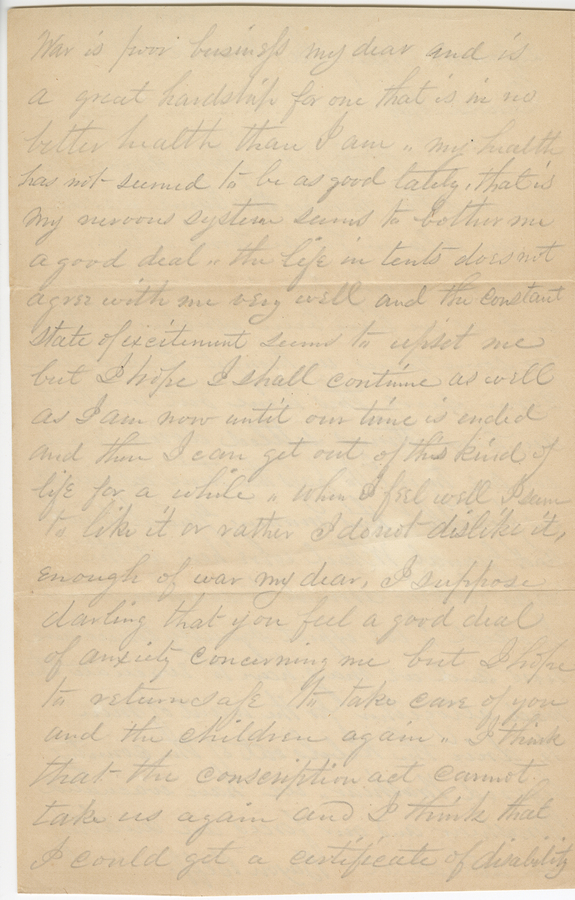 War is poor business my dear and is
a great hardship for one that is in no
better health than I am " my health
has not seemed to be as good lately, that is
my nervous system seems to bother me
a good deal " the life in tents does not
agree with me very well and the constant
state of excitement seems to upset me
but I hope I shall continue as well
as I am now until our time is ended
and then I can get out of this kind of
life for a while " when I feel well I seem
to like it or rather I do not dislike it,
enough of war my dear, I suppose
darling that you feel a good deal
of anxiety concerning me but I hope
to return safe to take care of you
and the children again " I think
that the conscription act cannot
take us again and I think that
I could get a certificate of disability